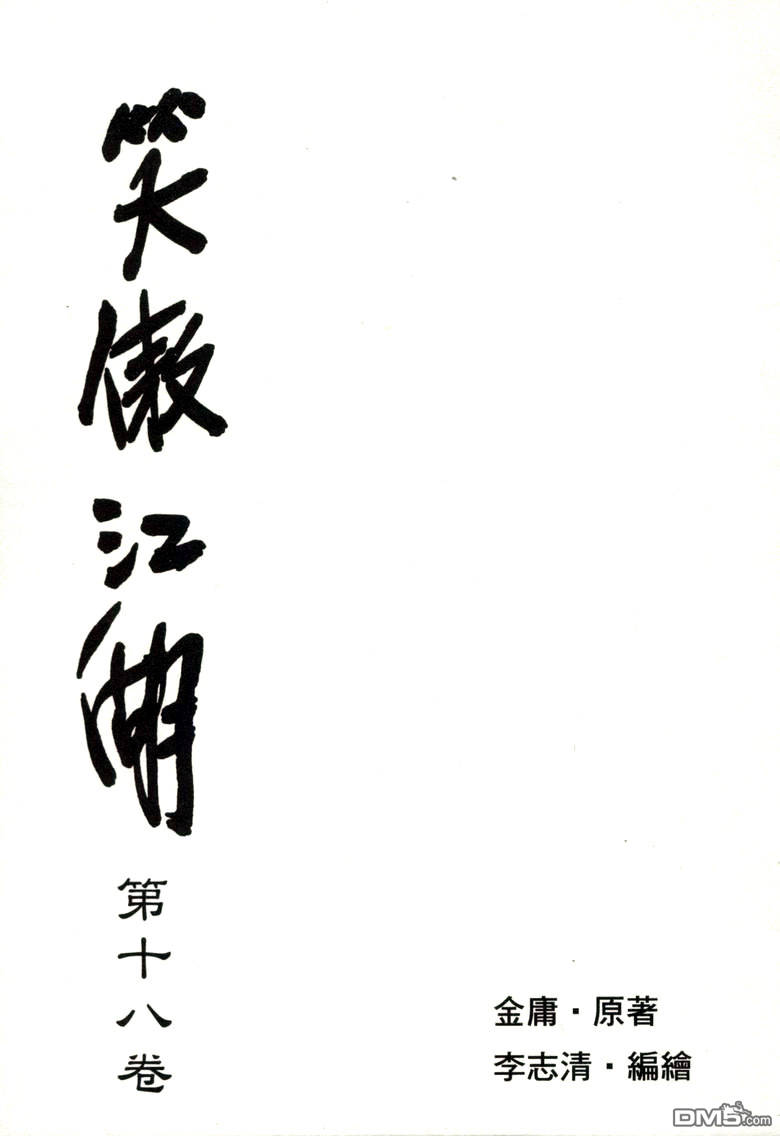 笑傲江湖
第十八卷
金庸·原著
李志清·編繪
DM5.com